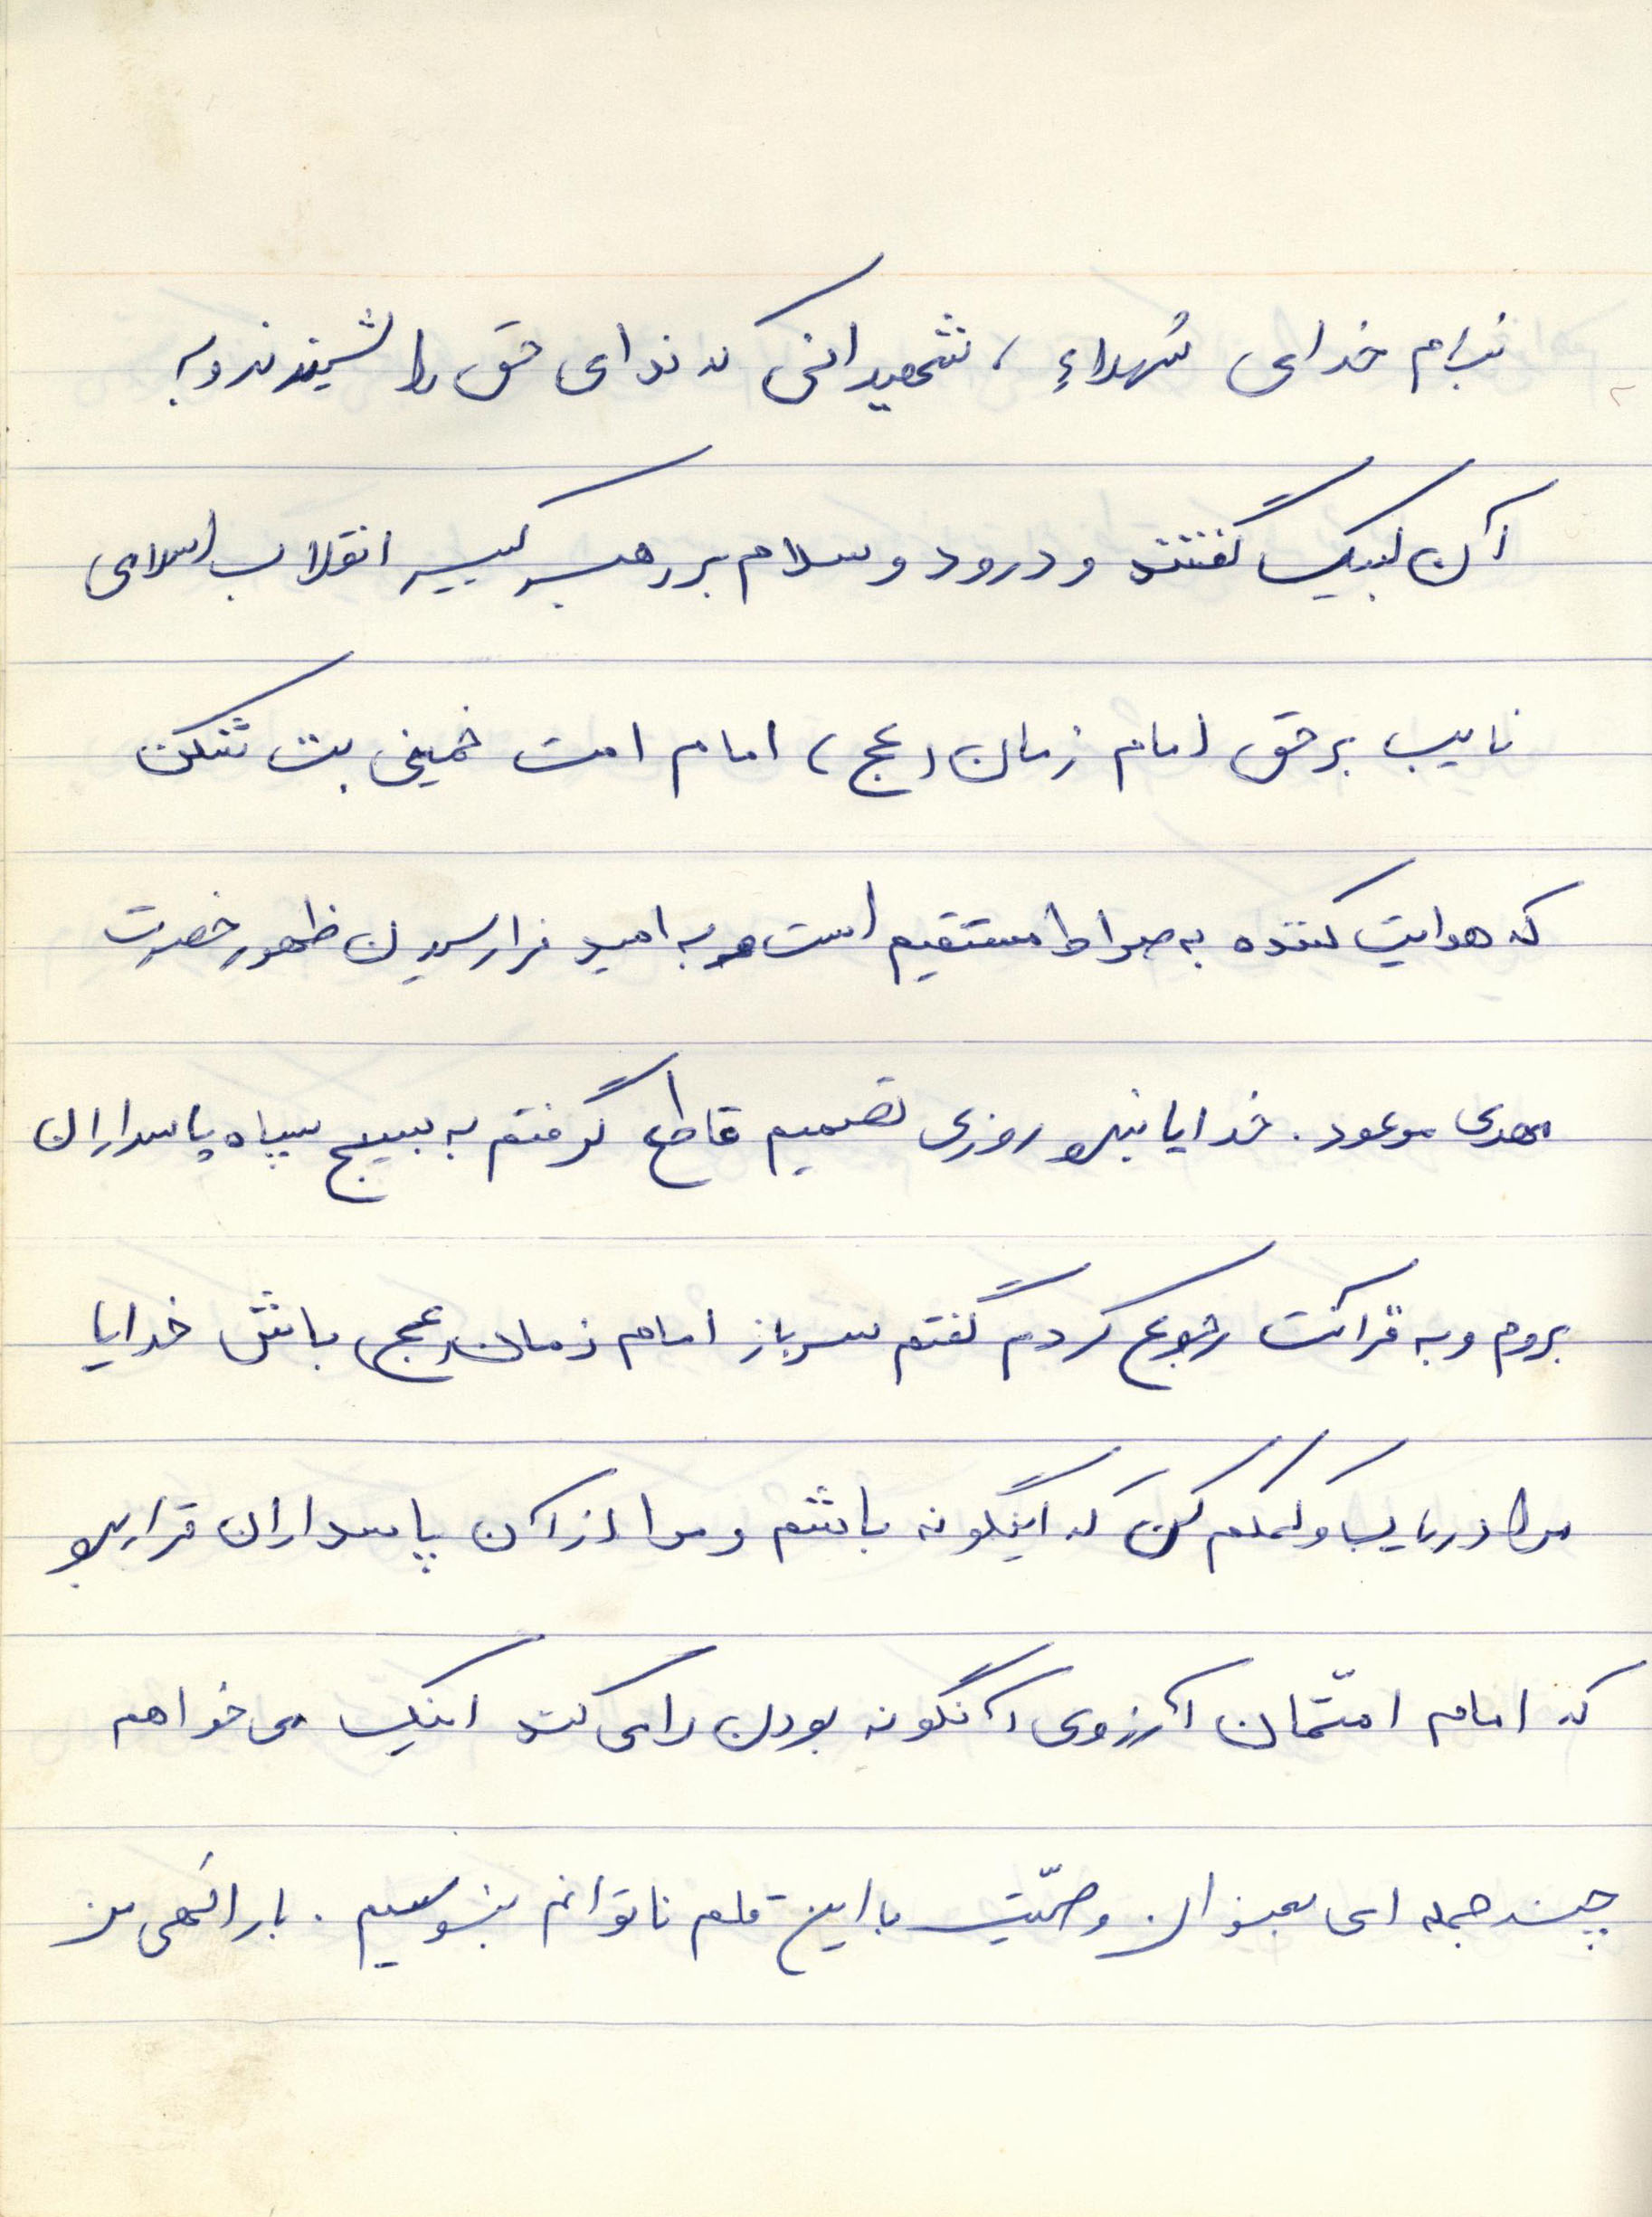 بنام خدای شهداء ، شهیدانی که ندای حق را شنیدند و به
آن لبیک گفتند و درود و سلام بر رهبر کبیر انقلاب اسلامی
نایب بر حق امام زمان (عج) ، امام امت خمینی بت شکن
که هدایت کننده به صراط مستقیم است و به امید فرا رسیدن ظهور حضرت
مهدی موعود . خدایا روزی تصمیم قاطع گرفتم به بسیج سپاه پاسداران
بروم و به قرآنت رجوع کردم گفتم سرباز امام زمان (عج) باش خدایا
مرا دریاب و کمکم کن که اینگونه باشم و مرا از آن پاسداران قرار بده
که امام امتمان آرزوی آنگونه بودن را می کند اینک می خواهم
چند جمله ای بعنوان وصیّت با این قلم ناتوانم بنویسم . بار الهی من